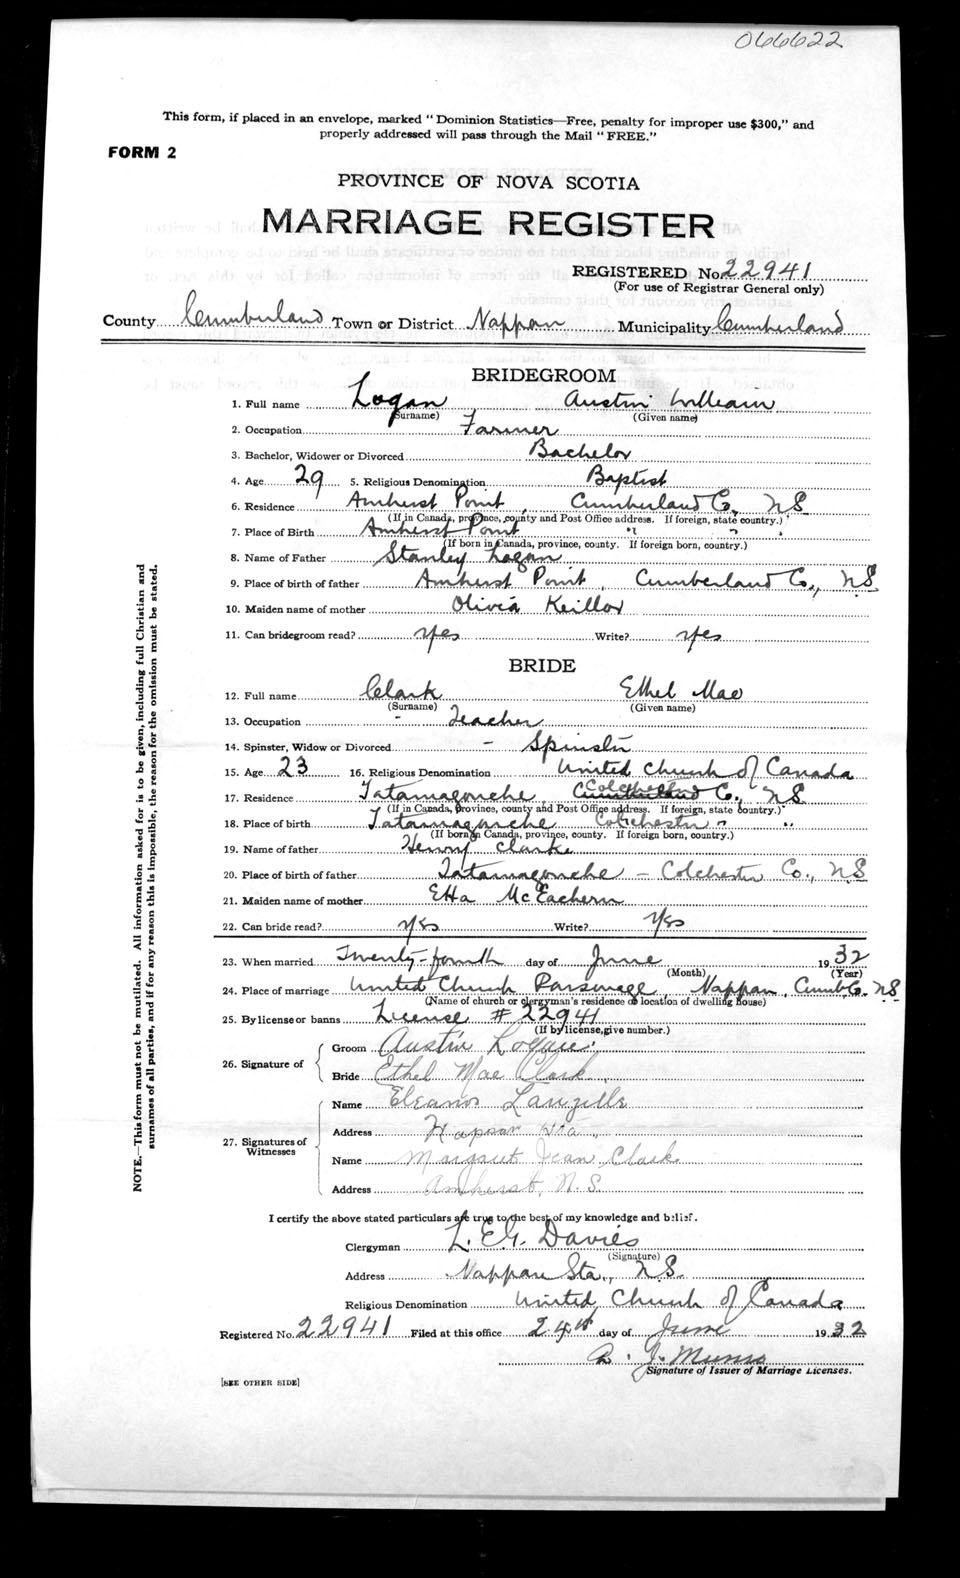 066622
This form, if placed in an envelope, marked "Dominion Statistics—Free, penalty for improper use $300," and
properly addressed will pass through the Mail "FREE."
FORM 2
PROVINCE OF NOVA SCOTIA
MARRIAGE REGISTER
REGISTERED No. 22941
(For use of Registrar General only)
County Cumberland Town or District Nappan Municipality Cumberland
BRIDEGROOM
1. Full name Logan Austin William
(Surname) (Given name)
2. Occupation Farmer
3. Bachelor, Widower or Divorced Bachelor
4. Age 29 5. Religious Denomination Baptist
6. Residence Amherst Point, Cumberland Co., NS
(If in Canada, province, county and Post Office address. If foreign, state country.)
7. Place of Birth Amherst Point " " .
(If born in Canada, province, county. If foreign born, country.)
8. Name of Father Stanley Logan
9. Place of birth of father Amherst Point, Cumberland Co., NS
10. Maiden name of mother Olivia Keillor
11. Can bridegroom read? Yes Write? Yes
BRIDE
12. Full name Clark Ethel Mae
(Surname) (Given name)
13. Occupation - Teacher
14. Spinster, Widow or Divorced - Spinster
15. Age 23 16. Religious Denomination United Church of Canada
17. Residence Tatamagouche, Cumberland Colchester Co., NS
(If in Canada, province, county and Post Office address. If foreign, state country.)
18. Place of birth Tatamagouche Colchester " "
(If born in Canada, province, county. If foreign born, country.)
19. Name of father Henry Clarke
20. Place of birth of father Tatamagouche - Colchester Co., NS
21. Maiden name of mother Etta McEachern
22. Can bride read? Yes Write? Yes
23. When married Twenty-fourth day of June 1932
(Month) (Year)
24. Place of marriage United Church Parsonage, Nappan, Cumb Co. NS
(Name of church or clergyman's residence or location of dwelling house)
25. By license or banns License # 22941
(If by license, give number.)
26. Signature of
Groom Austin Logan
Bride Ethel Mae Clark
27. Signatures of
Witnesses
Name Eleanor Langille
Address Nappan Sta.
Name Margaret Jean Clark
Address Amherst, N.S.
I certify the above stated particulars are true to the best of my knowledge and belief.
Clergyman L. E. G. Davies
(Signature)
Address Nappan Sta., NS.
Religious Denomination United Church of Canada
Registered No. 22941 Filed at this office 24th day of June 1932
J. Munro
Signature of Issuer of Marriage Licenses.
[SEE OTHER SIDE]
NOTE.—This form must not be mutilated. All information asked for is to be given, including full Christian and
surnames of all parties, and if for any reason this is impossible, the reason for the omission must be stated.